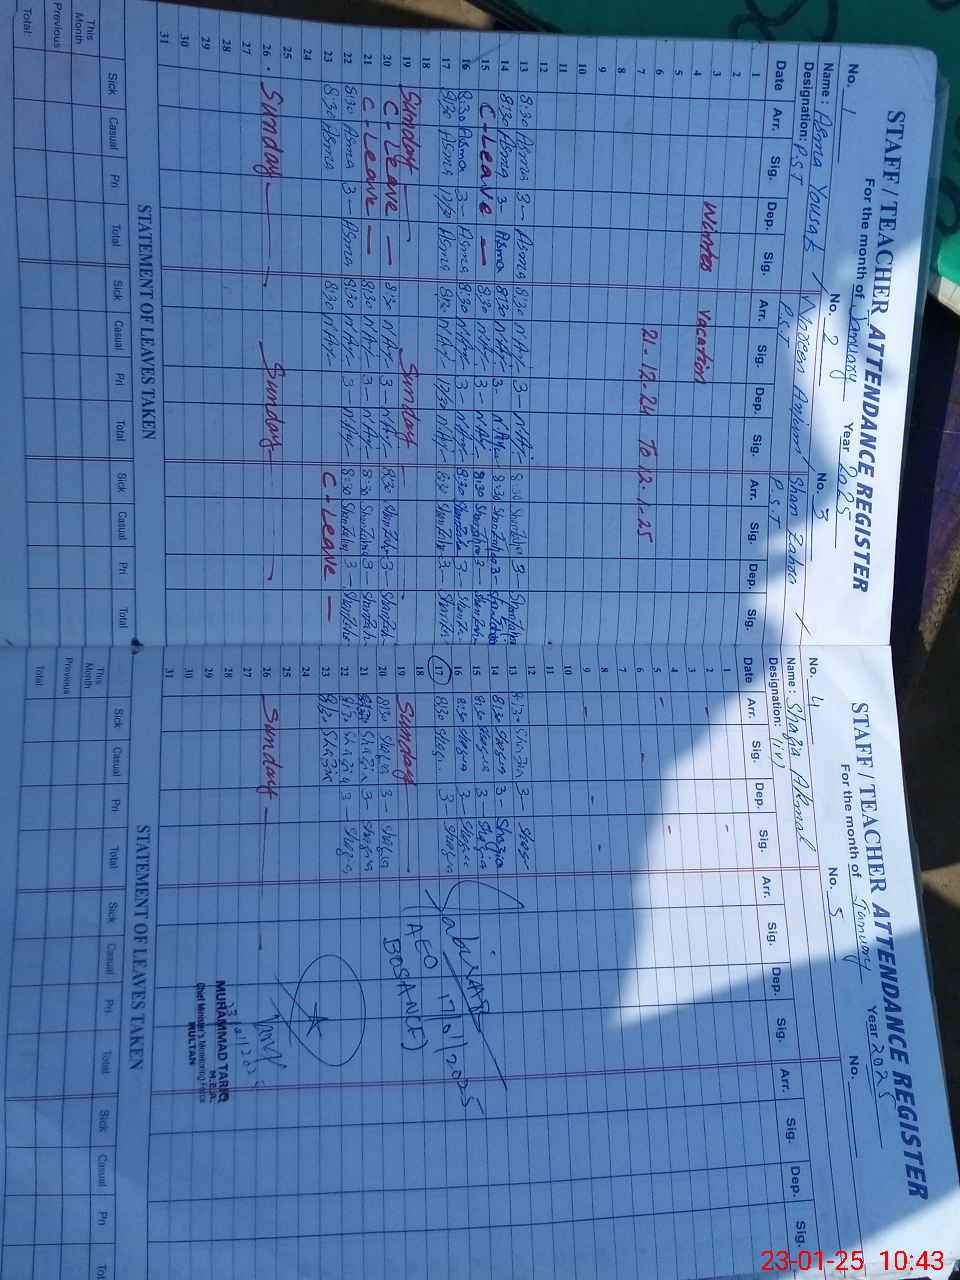 STAFF / TEACHER ATTENDANCE REGISTER
For the month of January Year 2025
No. 1 No. 2 No. 3
Name : Asma Yousaf / Noreen Anjum / Sham Zahra /
Designation: P.S.T P.S.T P.S.T
Date Arr. Sig. Dep. Sig. Arr. Sig. Dep. Sig. Arr. Sig. Dep. Sig.
1
2
3
4 Winter vacation
5
6
7 21-12-24 To 12-1-25
8
9
10
11
12
13 8:30 Asma 3- Asma 8:30 N'Ay- 3- N'Ay- 8:30 3-
14 8:30 Asma 3- Asma 8:30 N'Ay- 3- N'Ay- 8:30 3-
15 C-Leave - 8:30 N'Ay- 3- N'Ay- 8:30 3-
16 8:30 Asma 3- Asma 8:30 N'Ay- 3- N'Ay- 8:30 3-
17 8:30 Asma 12/30 Asma 8:30 N'Ay- 12/30 N'Ay- 8:30 3-
18
19 Sunday Sunday
20 C-Leave - 8:30 N'Ay- 3- N'Ay- 8:30 3-
21 C-Leave - 8:30 N'Ay- 3- N'Ay- 8:30 3-
22 8:30 Asma 3- Asma 8:30 N'Ay- 3- N'Ay- 8:30 3-
23 8:30 Asma 8:30 N'Ay- C-Leave -
24
25
26 Sunday Sunday
27
28
29
30
31
STATEMENT OF LEAVES TAKEN
Sick Casual Pri Total Sick Casual Pri Total Sick Casual Pri Total
This Month
Previous
Total:
STAFF / TEACHER ATTENDANCE REGISTER
For the month of January Year 2025
No. 4 No. 5 No.
Name : Shazia Akmal
Designation: (iv)
Date Arr. Sig. Dep. Sig. Arr. Sig. Dep. Sig. Arr. Sig. Dep. Sig.
1
2
3
4
5
6
7
8
9
10
11
12
13 8:30 Shazia 3-
14 8:30 Shazia 3- Shazia
15 8:30 Shazia 3- Shazia
16 8:30 Shazia 3- Shazia
17 8:30 Shazia 3- Shazia
18
19 Sunday
20 8:30 Shazia 3- Shazia
21 8:30 Shazia 3- Shazia
22 8:30 Shazia 3- Shazia
23 8:30 Shazia
24
25
26 Sunday
27
28
29
30
31
17/01/2025
(AEO
BOSANCE)
23/01/2025
MUHAMMAD TARIQ
M.E.A.
Chief Minister's Monitoring Force
MULTAN
STATEMENT OF LEAVES TAKEN
Sick Casual Pri Total Sick Casual Pri Total Sick Casual Pri
This Month
Previous
Total:
23-01-25 10:43